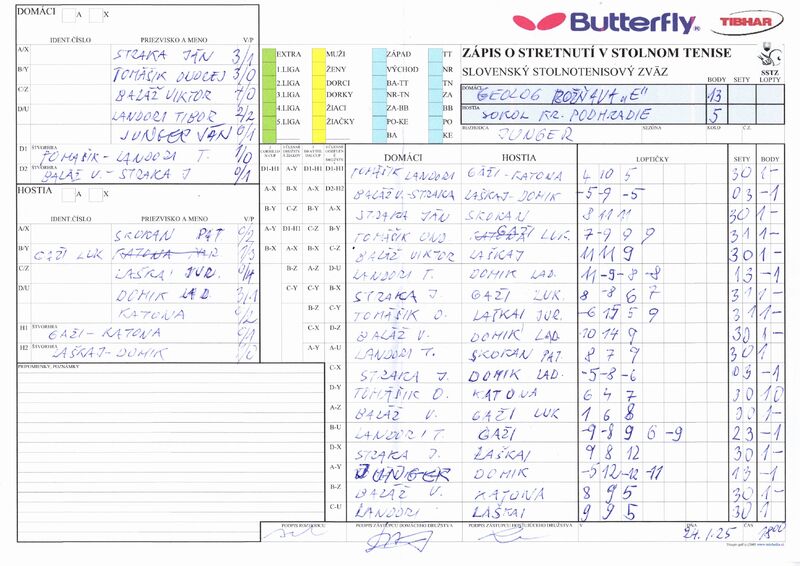 DOMÁCI A X
IDENT.ČÍSLO PRIEZVISKO A MENO V/P
A/X STRAKA JÁN 3/1
B/Y TOMÁŠIK ONDREJ 3/0
C/Z BALÁŽ VIKTOR 4/0
D/U LANDORI TIBOR 2/2
JUNGER VAN 0/1
D1 ŠTVORHRA TOMÁŠIK-LANDORI T. 1/0
D2 ŠTVORHRA BALÁŽ V.-STRAKA J 0/1
HOSTIA A X
IDENT.ČÍSLO PRIEZVISKO A MENO V/P
A/X SKOKAN PAT 0/2
B/Y GAŽI LUK 1/3
C/Z LAŠKAI JUR. 0/4
D/U DOMIK LAD. 3/1
KATONA 0/2
H1 ŠTVORHRA GAŽI-KATONA 0/1
H2 ŠTVORHRA LAŠKAJ-DOMIK 1/0
PRIPOMIENKY, POZNÁMKY
Butterfly TIBHAR
ZÁPIS O STRETNUTÍ V STOLNOM TENISE
SLOVENSKÝ STOLNOTENISOVÝ ZVÄZ
SSTZ
BODY SETY LOPTY
EXTRA MUŽI ZÁPAD TT
1.LIGA ŽENY VÝCHOD NR
2.LIGA DORCI BA-TT TN
3.LIGA DORKY NR-TN ZA
4.LIGA ŽIACI ZA-BB BB
5.LIGA ŽIAČKY PO-KE PO
BA KE
DOMÁCI GEOLOG ROŽŇAVA „E" 13
HOSTIA SOKOL KR. PODHRADIE 5
ROZHODCA JUNGER SEZÓNA KOLO Č.Z.
DOMÁCI HOSTIA LOPTIČKY SETY BODY
D1-H1 A-X A-X D1-H1 TOMÁŠIK LANDORI GAŽI-KATONA 4 10 5 30 1-
A-X B-Y A-X D2-H2 BALÁŽ V-STRAKA LAŠKAJ-DOMIK -5 -9 -5 03 -1
B-Y C-Z B-Y A-X STRAKA JÁN SKOKAN 8 11 11 30 1-
A-Y D1-H1 C-Z B-Y TOMÁŠIK OND GAŽI LUK. -7 9 9 9 31 1-
B-X A-X B-X C-Z BALÁŽ VIKTOR LAŠKAJ 11 11 9 30 1-
B-Z A-Z D-U LANDORI T. DOMIK LAD. 11 -9 -8 -8 13 -1
C-Y C-Y B-X STRAKA J. GAŽI LUK. 8 -8 6 7 31 1-
B-Z C-Y TOMÁŠIK O. LAŠKAI JUR. -6 15 5 9 31 1-
C-X D-Z BALÁŽ V. DOMIK LAD 10 14 9 30 1-
A-Y A-U LANDORI T. SKOKAN PAT. 8 7 9 30 1
C-X STRAKA J. DOMIK LAD. -5 -8 -6 03 -1
D-Y TOMÁŠIK O. KATONA 6 4 7 30 10
A-Z BALÁŽ V. GAŽI LUK 1 6 8 30 1-
B-U LANDORI T. GAŽI -9 -8 9 6 -9 23 -1
D-X STRAKA J. LAŠKAI 9 8 12 30 1-
A-Y JUNGER DOMIK -5 12 -12 -11 13 -1
B-Z BALÁŽ V. KATONA 8 9 5 30 1-
C-U LANDORI LAŠKAI 9 9 5 30 1
PODPIS ROZHODCU PODPIS ZÁSTUPCU DOMÁCEHO DRUŽSTVA PODPIS ZÁSTUPCU HOSŤUJÚCEHO DRUŽSTVA V DŇA 24.1.25 18:00